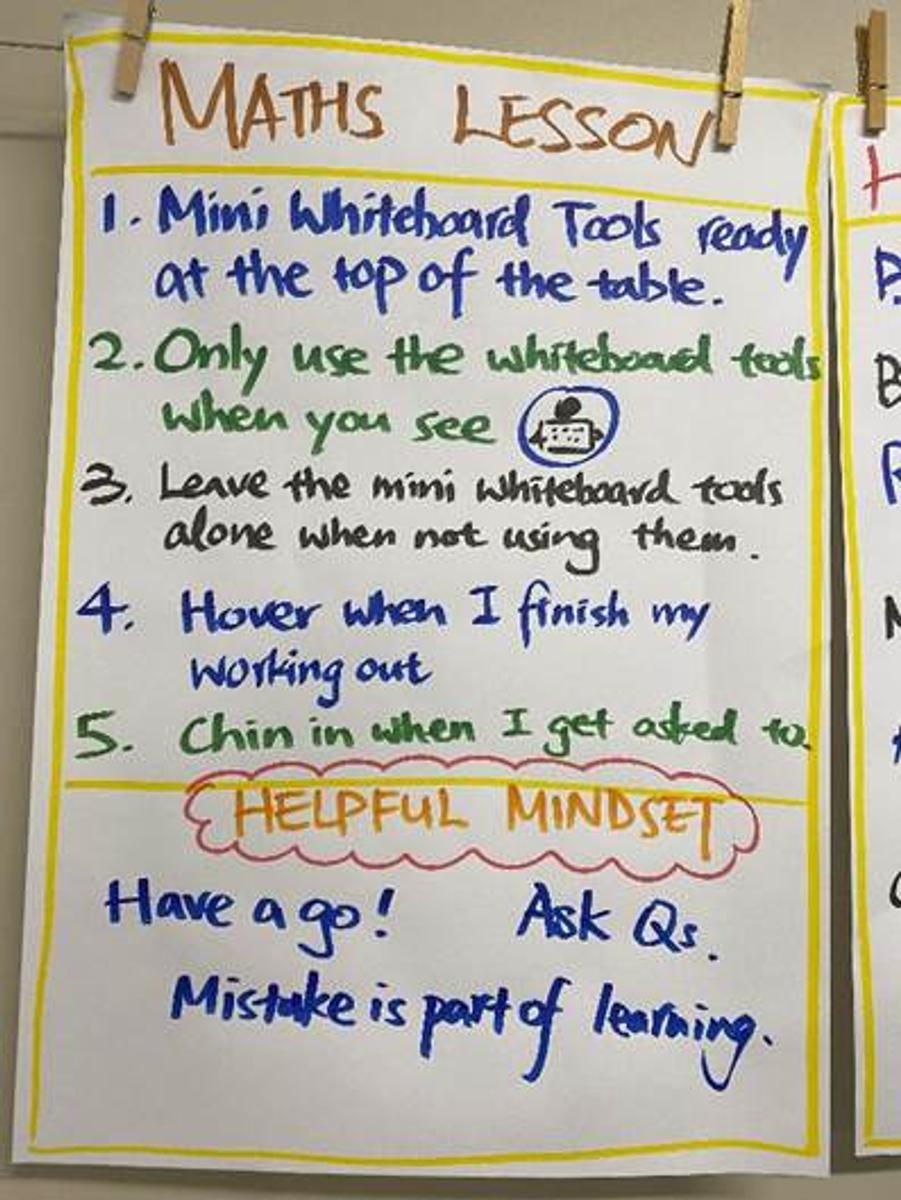 MATHS LESSON
1. Mini Whiteboard Tools ready
at the top of the table.
2. Only use the whiteboard tools
when you see
3. Leave the mini whiteboard tools
alone when not using them.
4. Hover when I finish my
working out
5. Chin in when I get asked to.
HELPFUL MINDSET
Have a go! Ask Qs.
Mistake is part of learning.